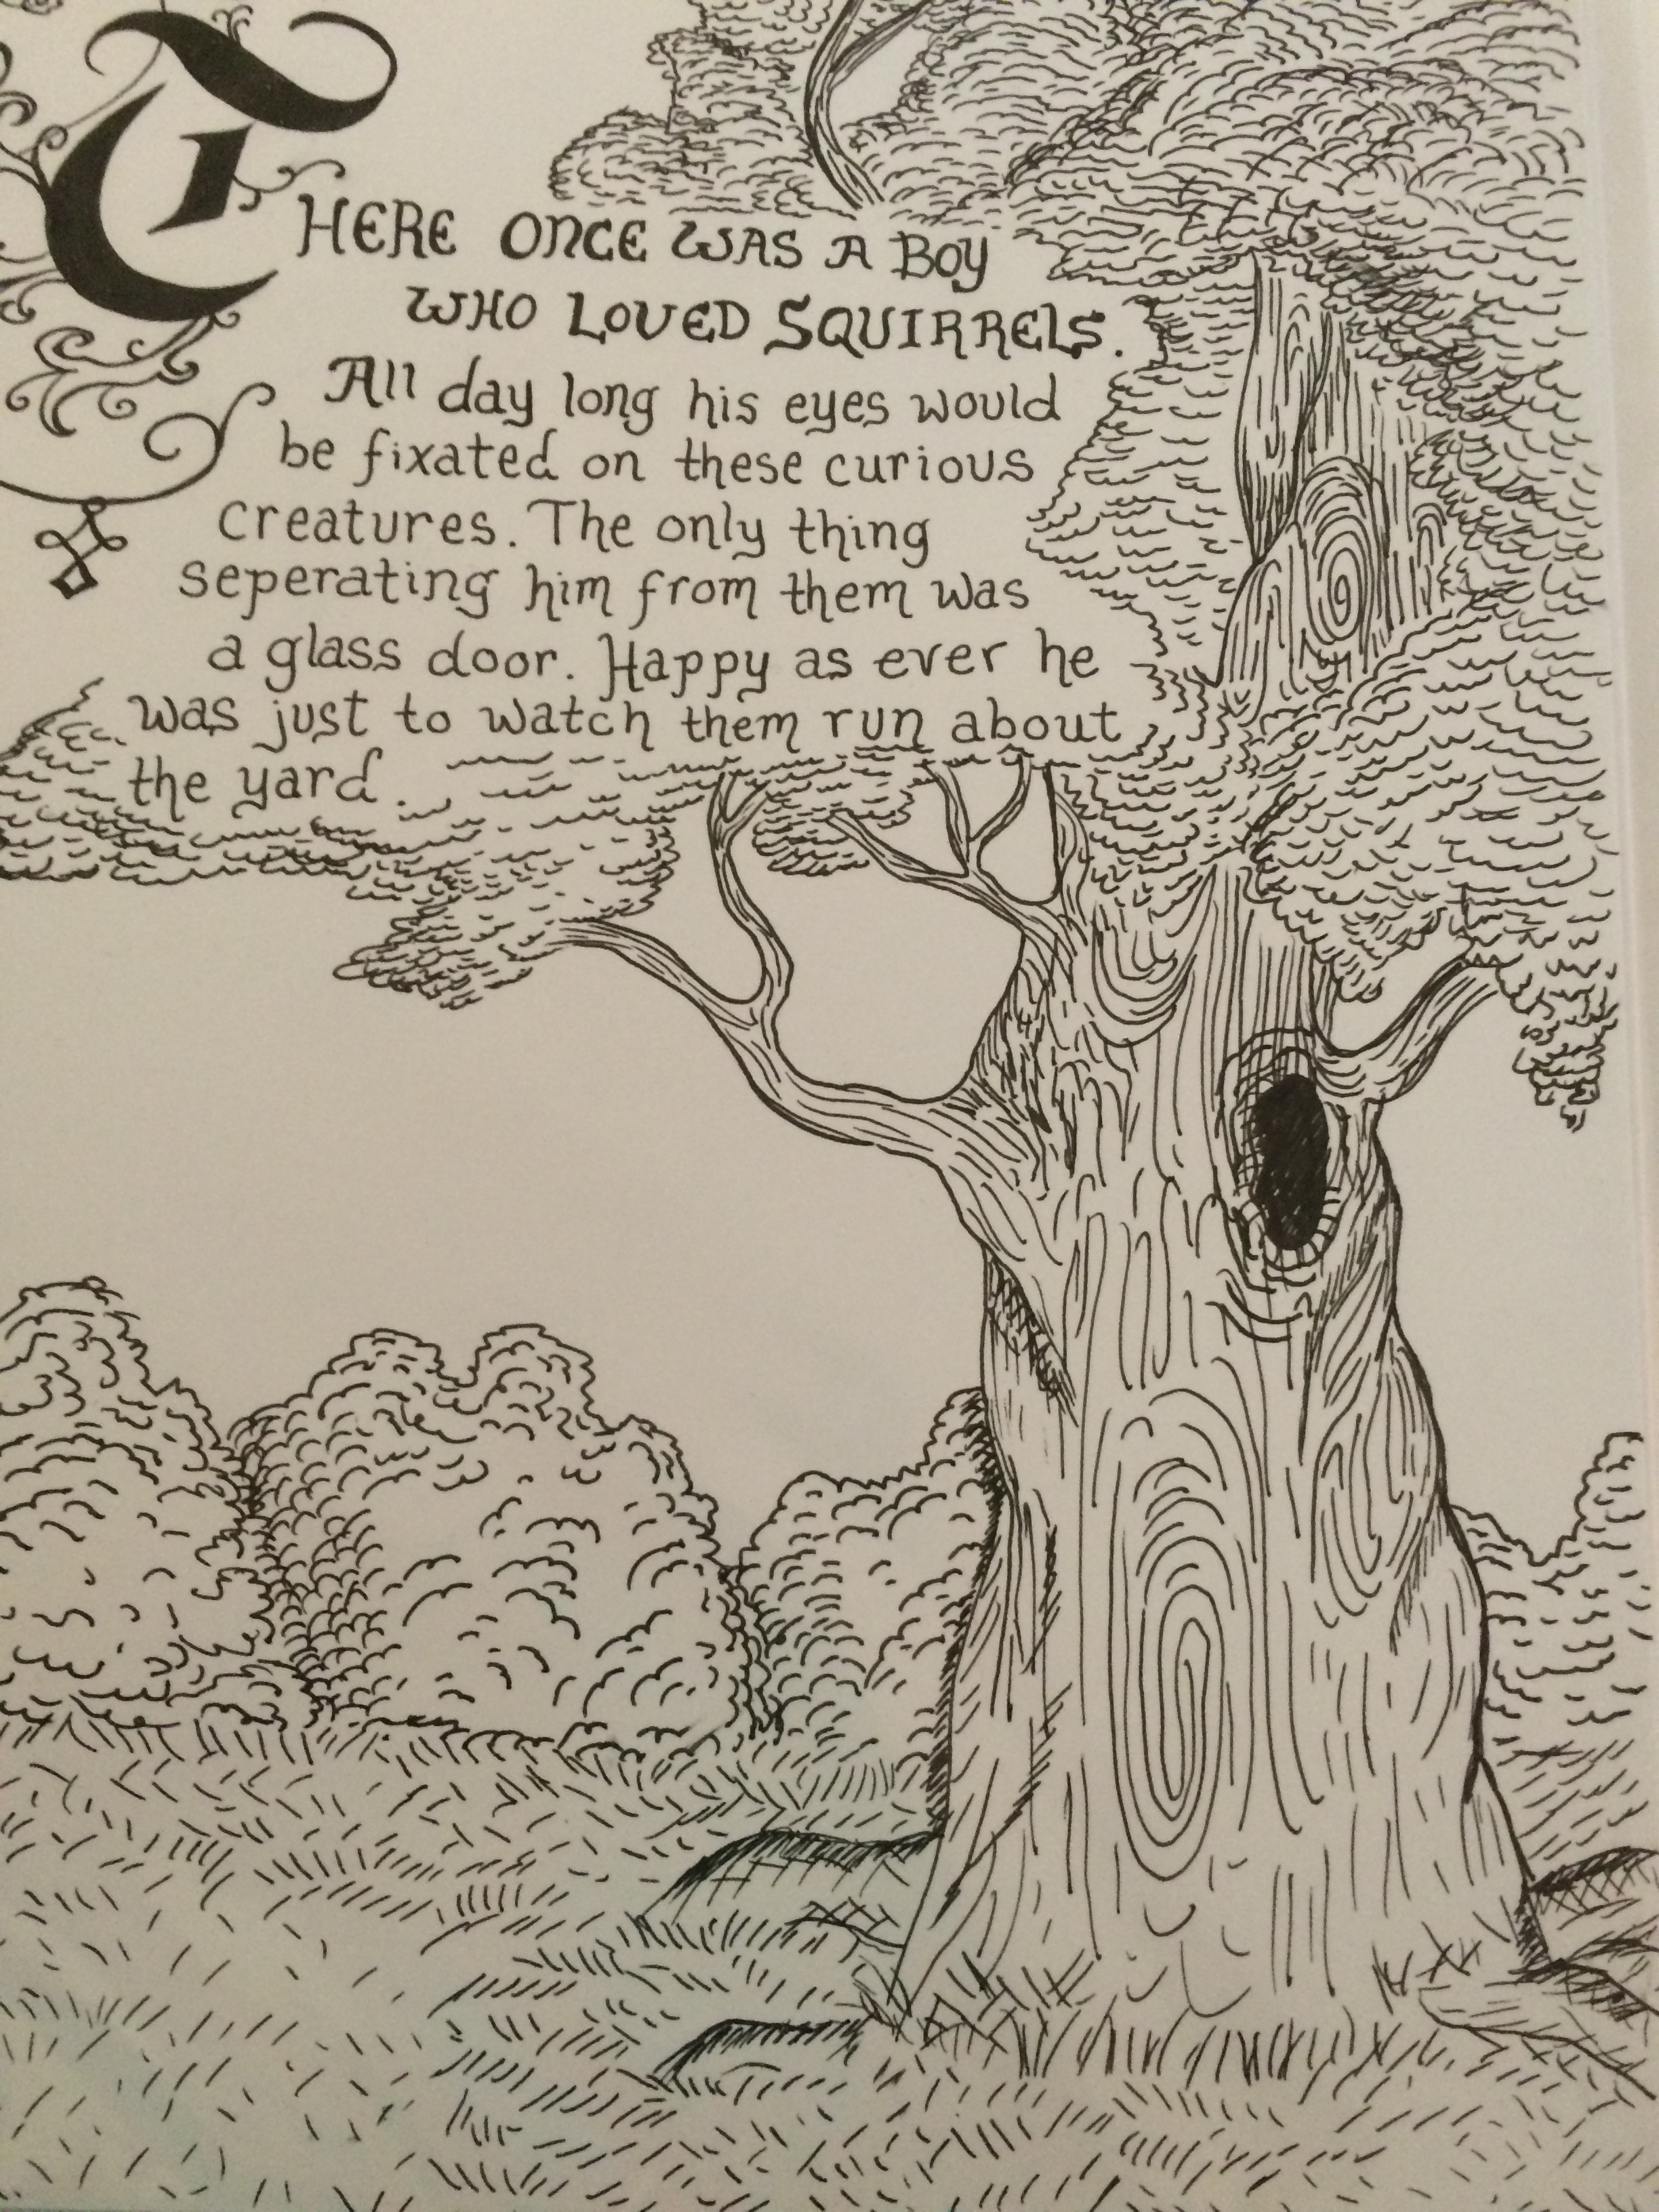 THERE ONCE WAS A BOY
WHO LOVED SQUIRRELS.
All day long his eyes would
be fixated on these curious
creatures. The only thing
seperating him from them was
a glass door. Happy as ever he
was just to watch them run about
the yard.